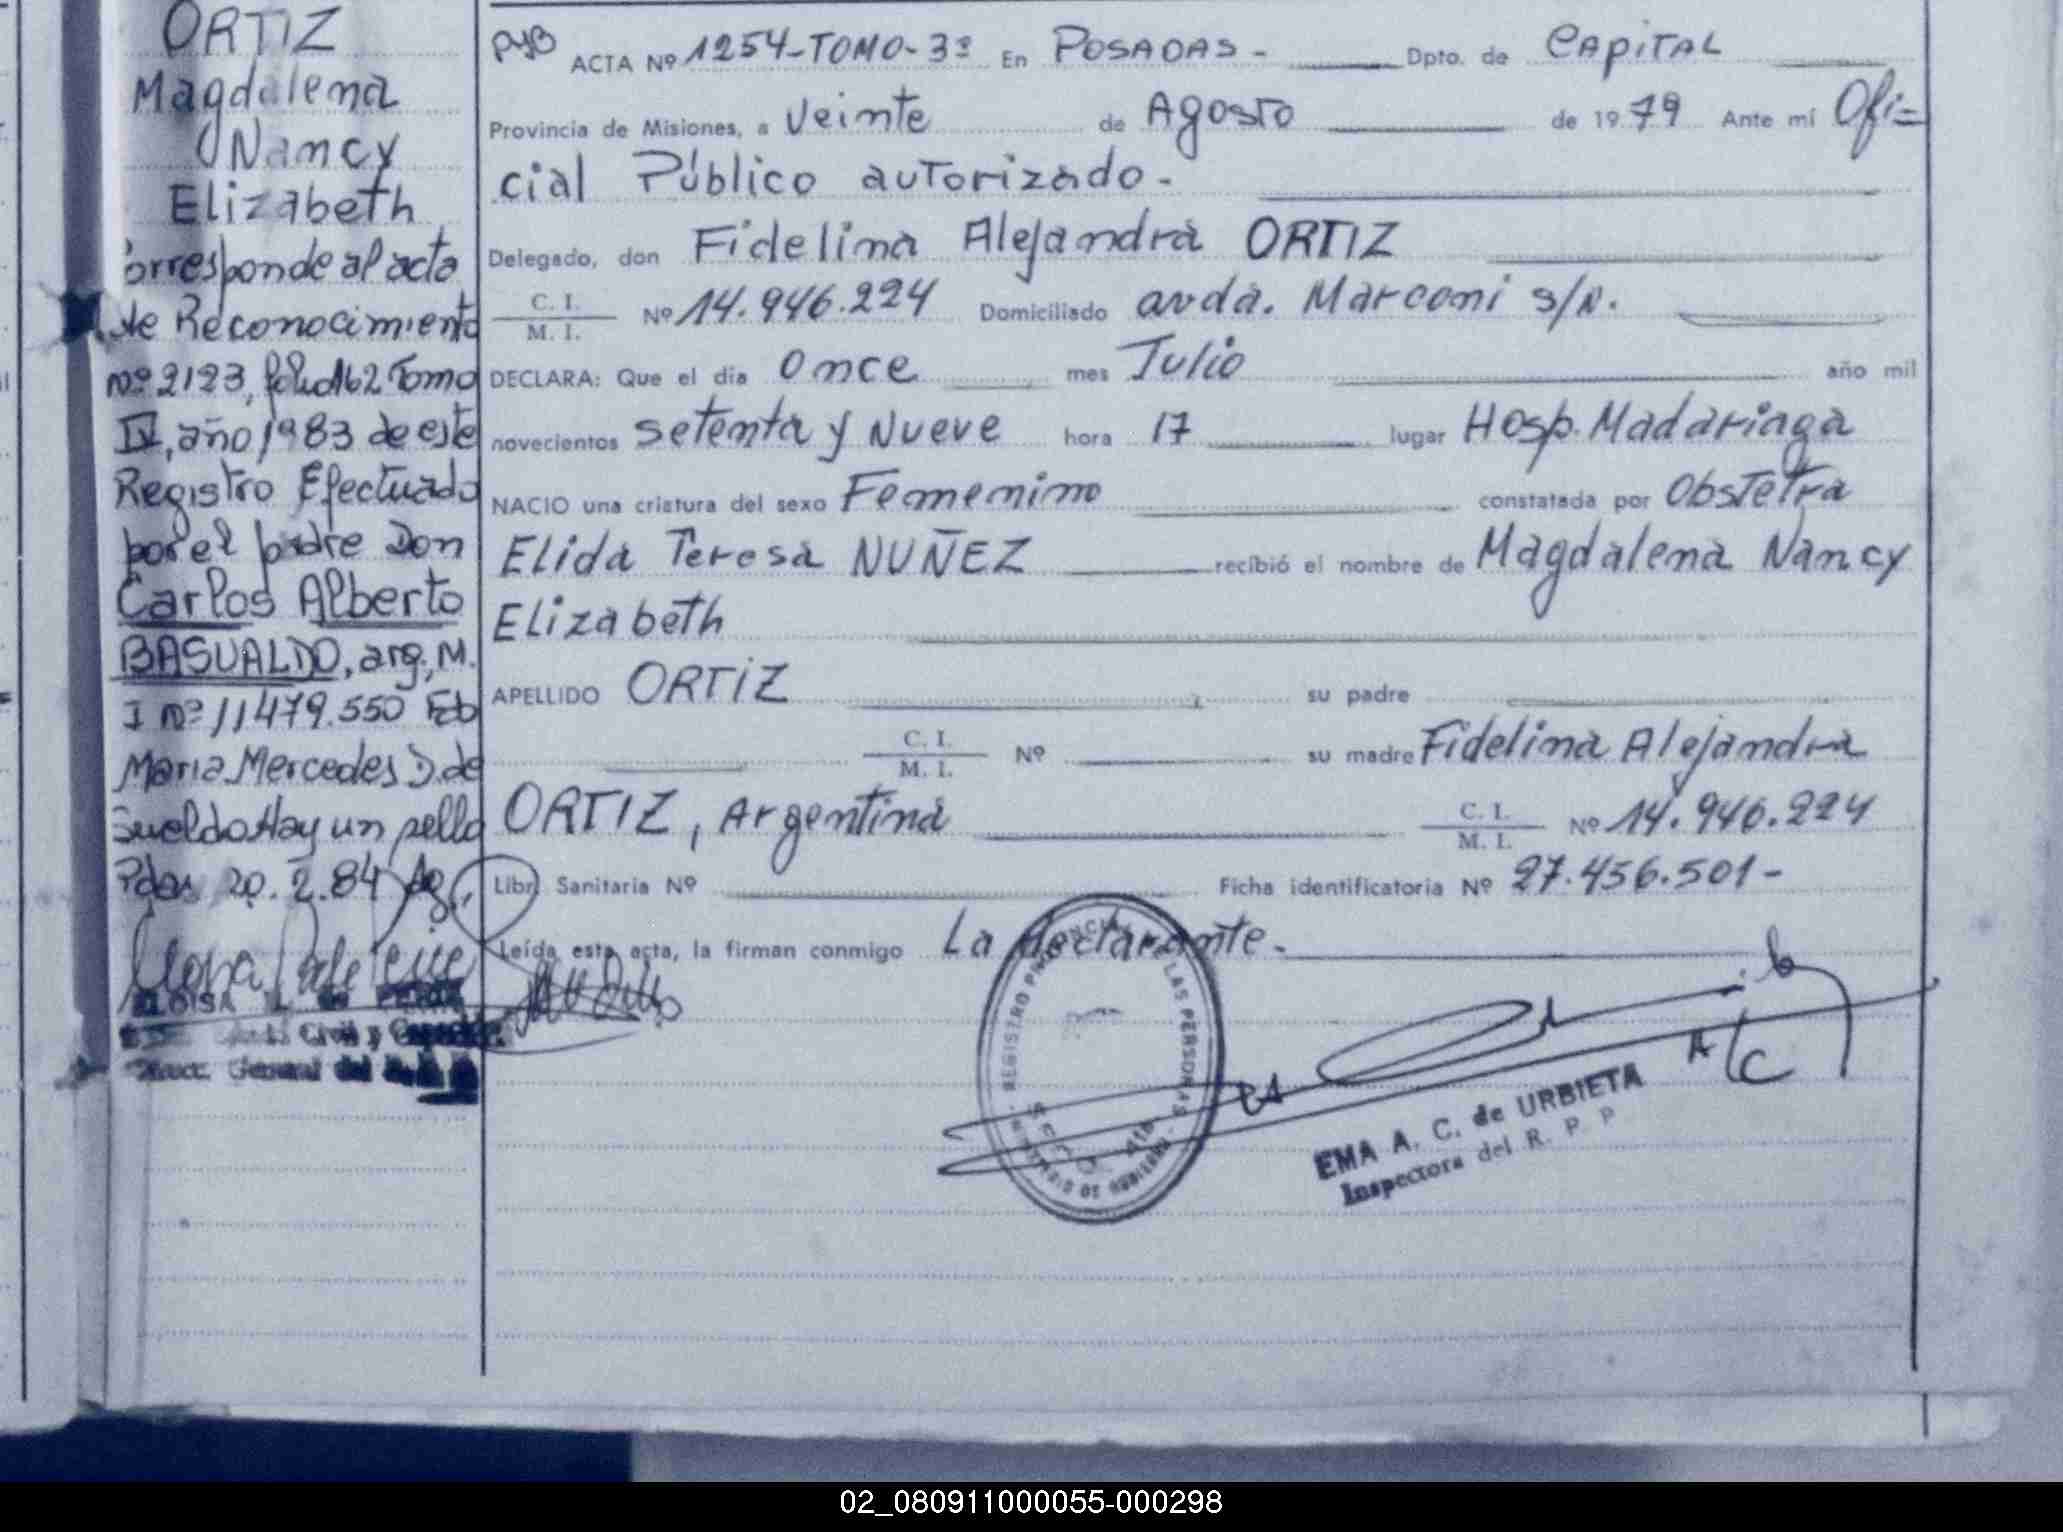 ORTIZ
Magdalena
Nancy
Elizabeth
orresponde al acta
de Reconocimiento
Nº 2123, folio 162 Tomo
IV, año 1983 de este
Registro Efectuado
por el padre Don
Carlos Alberto
BASUALDO, arg., M.
I Nº 11479.550 Fdo
Maria Mercedes D. de
Sueldo Hay un sello
Pdas 20.2.84
Civil y
General del
ACTA Nº 1254-TOMO-3º En POSADAS- Dpto. de CAPITAL
Provincia de Misiones, a Veinte de Agosto de 1979 Ante mí Ofi=
cial Público autorizado-
Delegado, don Fidelina Alejandra ORTIZ
C. I.
M. I. Nº 14.946.224 Domiciliado avda. Marconi s/n.
DECLARA: Que el día Once mes Julio año mil
novecientos setenta y Nueve hora 17 lugar Hosp. Madariaga
NACIO una criatura del sexo Femenino constatada por Obstetra
Elida Teresa NUÑEZ recibió el nombre de Magdalena Nancy
Elizabeth
APELLIDO ORTIZ su padre
C. I.
M. I. Nº su madre Fidelina Alejandra
ORTIZ, Argentina C. I.
M. I. Nº 14.946.224
Libr. Sanitaria Nº Ficha identificatoria Nº 27.456.501-
Leída esta acta, la firman conmigo La declarante-
REGISTRO PROVINCIAL DE LAS PERSONAS
A/C
EMA A. C. de URBIETA
Inspectora del R. P. P
02_080911000055-000298